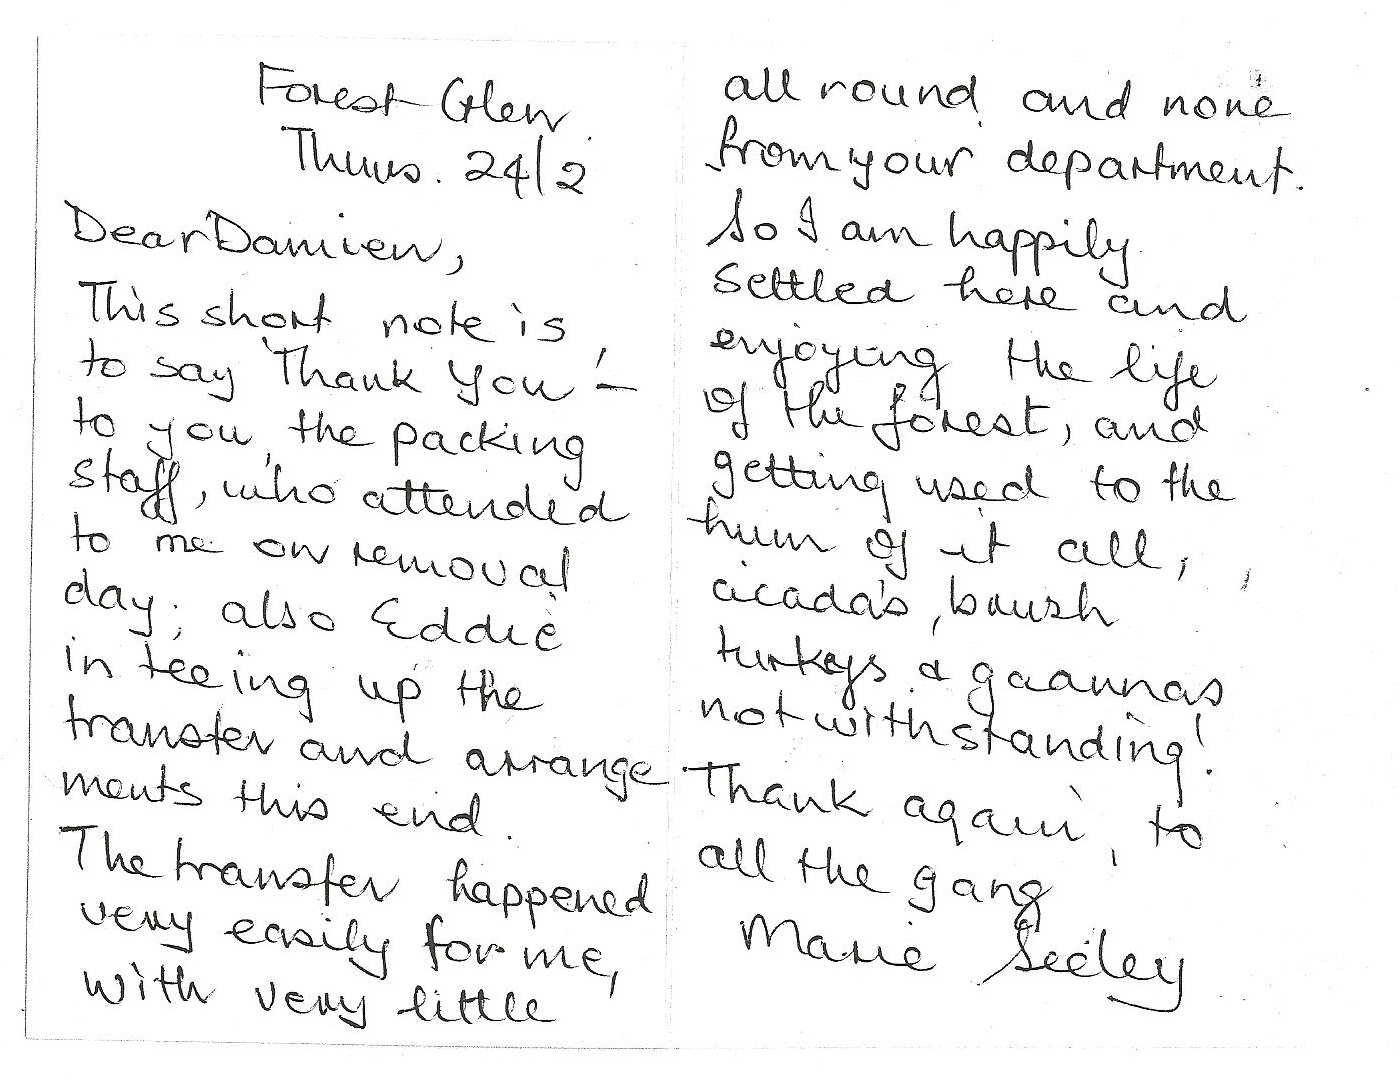 Forest Glen
Thurs. 24/2
Dear Damien,
This short note is
to say 'Thank You' –
to you, the packing
staff, who attended
to me on removal
day; also Eddie
in teeing up the
transfer and arrange
ments this end.
The transfer happened
very easily for me,
with very little
all round and none
from your department.
So I am happily
settled here and
enjoying the life
of the forest, and
getting used to the
hum of it all,
cicada's, brush
turkeys & goannas
notwithstanding!
Thank again, to
all the gang
Marie Seeley